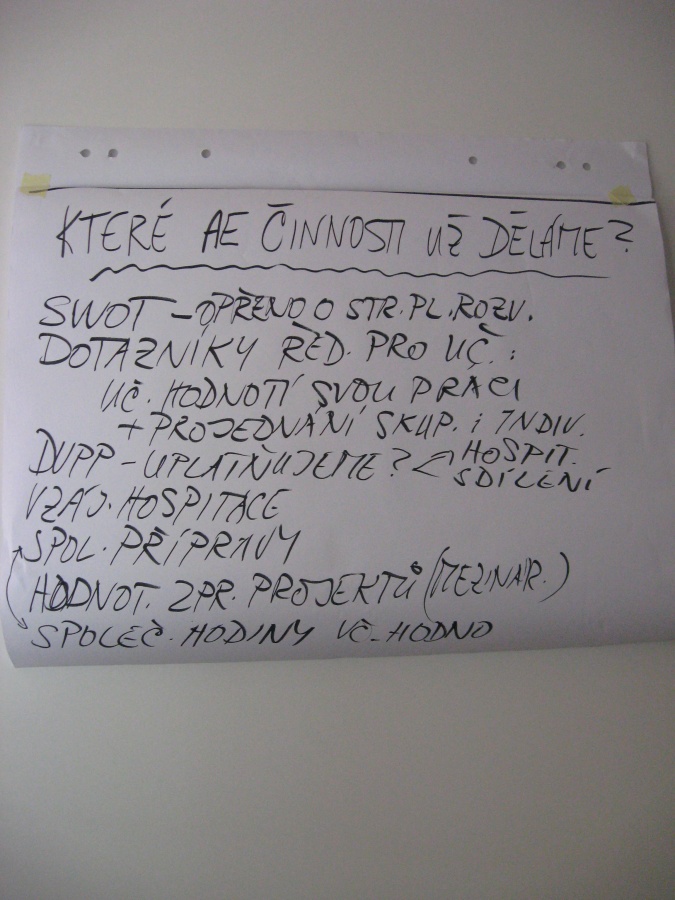 KTERÉ AE ČINNOSTI UŽ DĚLÁME?
SWOT - OPŘENO O STR. PL. ROZV.
DOTAZNÍKY ŘED. PRO UČ.:
UČ. HODNOTÍ SVOU PRÁCI
+ PROJEDNÁNÍ SKUP. i INDIV.
DVPP - UPLATŇUJEME? < HOSPIT.
SDÍLENÍ
VZÁJ. HOSPITACE
SPOL. PŘÍPRAVY
HODNOT. ZPR. PROJEKTŮ (MEZINÁR.)
SPOLEČ. HODINY VČ. HODNO